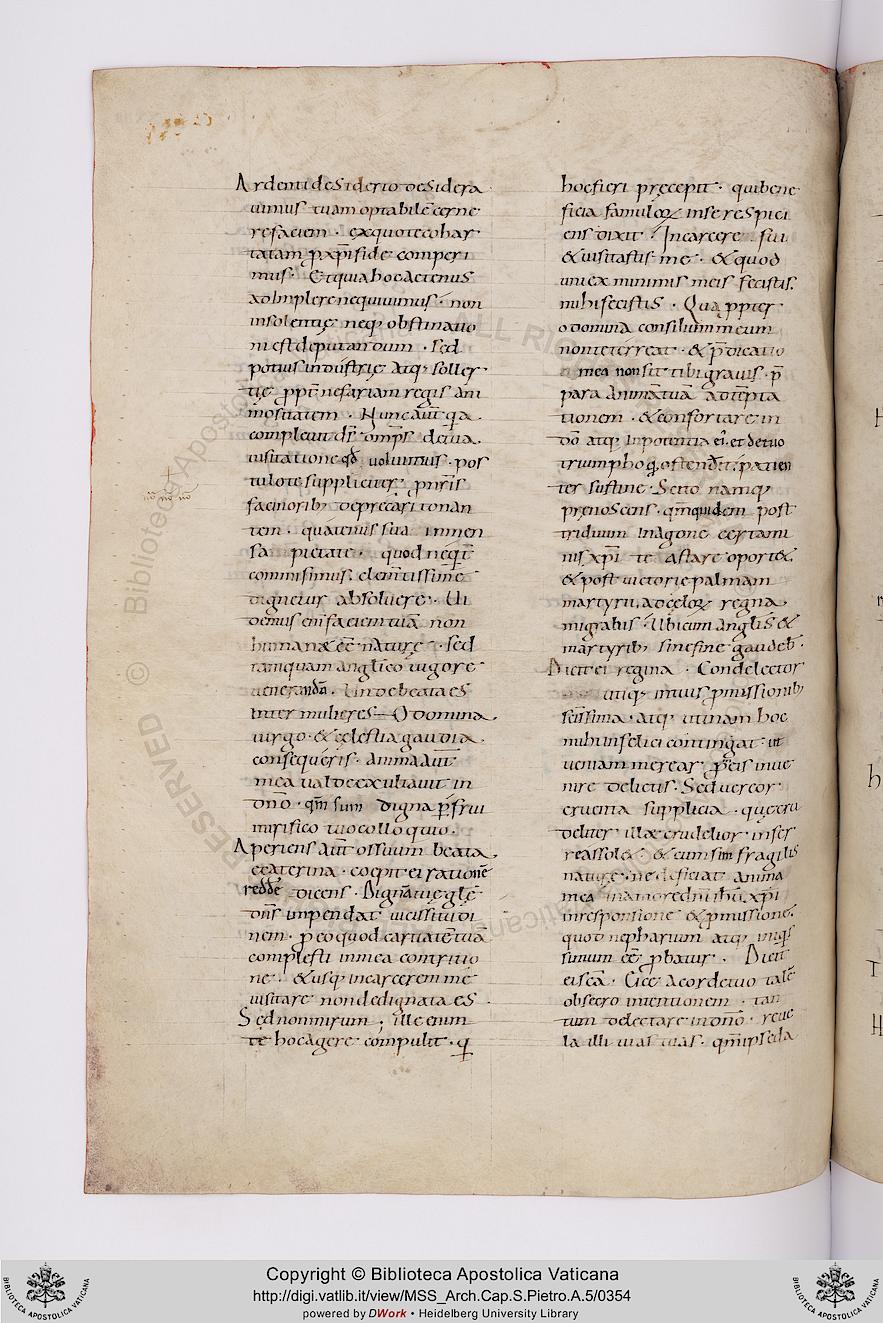 Ardenti desiderio desidera
uimus tuam optabilē cerne
re faciem · ex quo te cohor
tatam p̱ xp̄i fide comperi
mus · Et quia hoc actenus
adimplere nequiuimus · non
insolentię neq; obstinatio
ni est deputandum · sed
potius industrię atq; soller
tię ꝓpt̄ nefariam regis ani
mositatem · Nunc aūt q̇a
compleuit d̄s om̄ps de tua
uisitatione qđ uoluimus · pos
tulo te suppliciter ꝓ nr̄is
facinorib; deprecari tonan
tem · quatenus sua inmen
sa pietate · quod neqt̄
commisimus · clementissime
dignetur absoluere · Ui
demus eni faciem tuā non
humanę eē naturę · sed
tamquam angl̄ico uigore
uenerandā · Unde beata es
inter mulieres O domina
uirgo · & cęlestia gaudia
consequeris · Anima aūt
mea ualde exultauit in
dn̄o · qm̄ sum digna p̱frui
mirifico tuo colloquio ·
Aperiens aūt os suum beata
ecaterina · coepit ei rationē
reddē dicens · Dignā tuę glę
dn̄s impendat uicissitudi
nem · ꝓ eo quod caritatē tuā
complesti in mea contritio
ne · & usq; in carcerem me
uisitare non dedignata es ·
Sed non mirum · ille enim
te hoc agere compulit · q̇
hoc fieri pręcepit · qui bene
ficia famuloꝝ in se respici
ens dixit · In carcere fui
& uisitastis me · & quod
uni ex minimis meis fecistis
mihi fecistis · Qua ꝓpter
o domina consilium meum
non te terreat · & p̄dicatio
mea non sit tibi grauis · p̄
para animā tuā ad tēpta
tionem · & confortare in
dō atq; in potentia ei · et de tuo
triumpho q̇ ostendet · patien
ter sustine · Scito namq;
prenoscens · qm̄ quidem post
triduum in agone certami
nis xp̄i te astare oportet
& post uictorię palmam
martyrii · ad cęloꝝ regna
migrabis · Ubi cum anglis &
martyrib; sine fine gaudeb ·
Dicit ei regina · Condelector
utiq; intuis ꝓmissionib;
sc̄issima · atq; utinam hoc
mihi infelici contingat · ut
ueniam merear ꝓ eis inue
nire delictis · Sed uereor
cruenta supplicia · quę cru
deliter ille crudelior infer
re assolet · & cum sim fragilis
naturę · ne deficiat anima
mea in amore dn̄i ih̄u xp̄i
in responsione & ꝓmissione
quod nepharium atq; iniq̇s
simum eē ꝓbatur · Dicit
ei sc̄a · Ecce a corde tuo talē
obsecro intentionem · tan
tum delectare in dn̄o · reue
la illi uias tuas · qm̄ ipse da